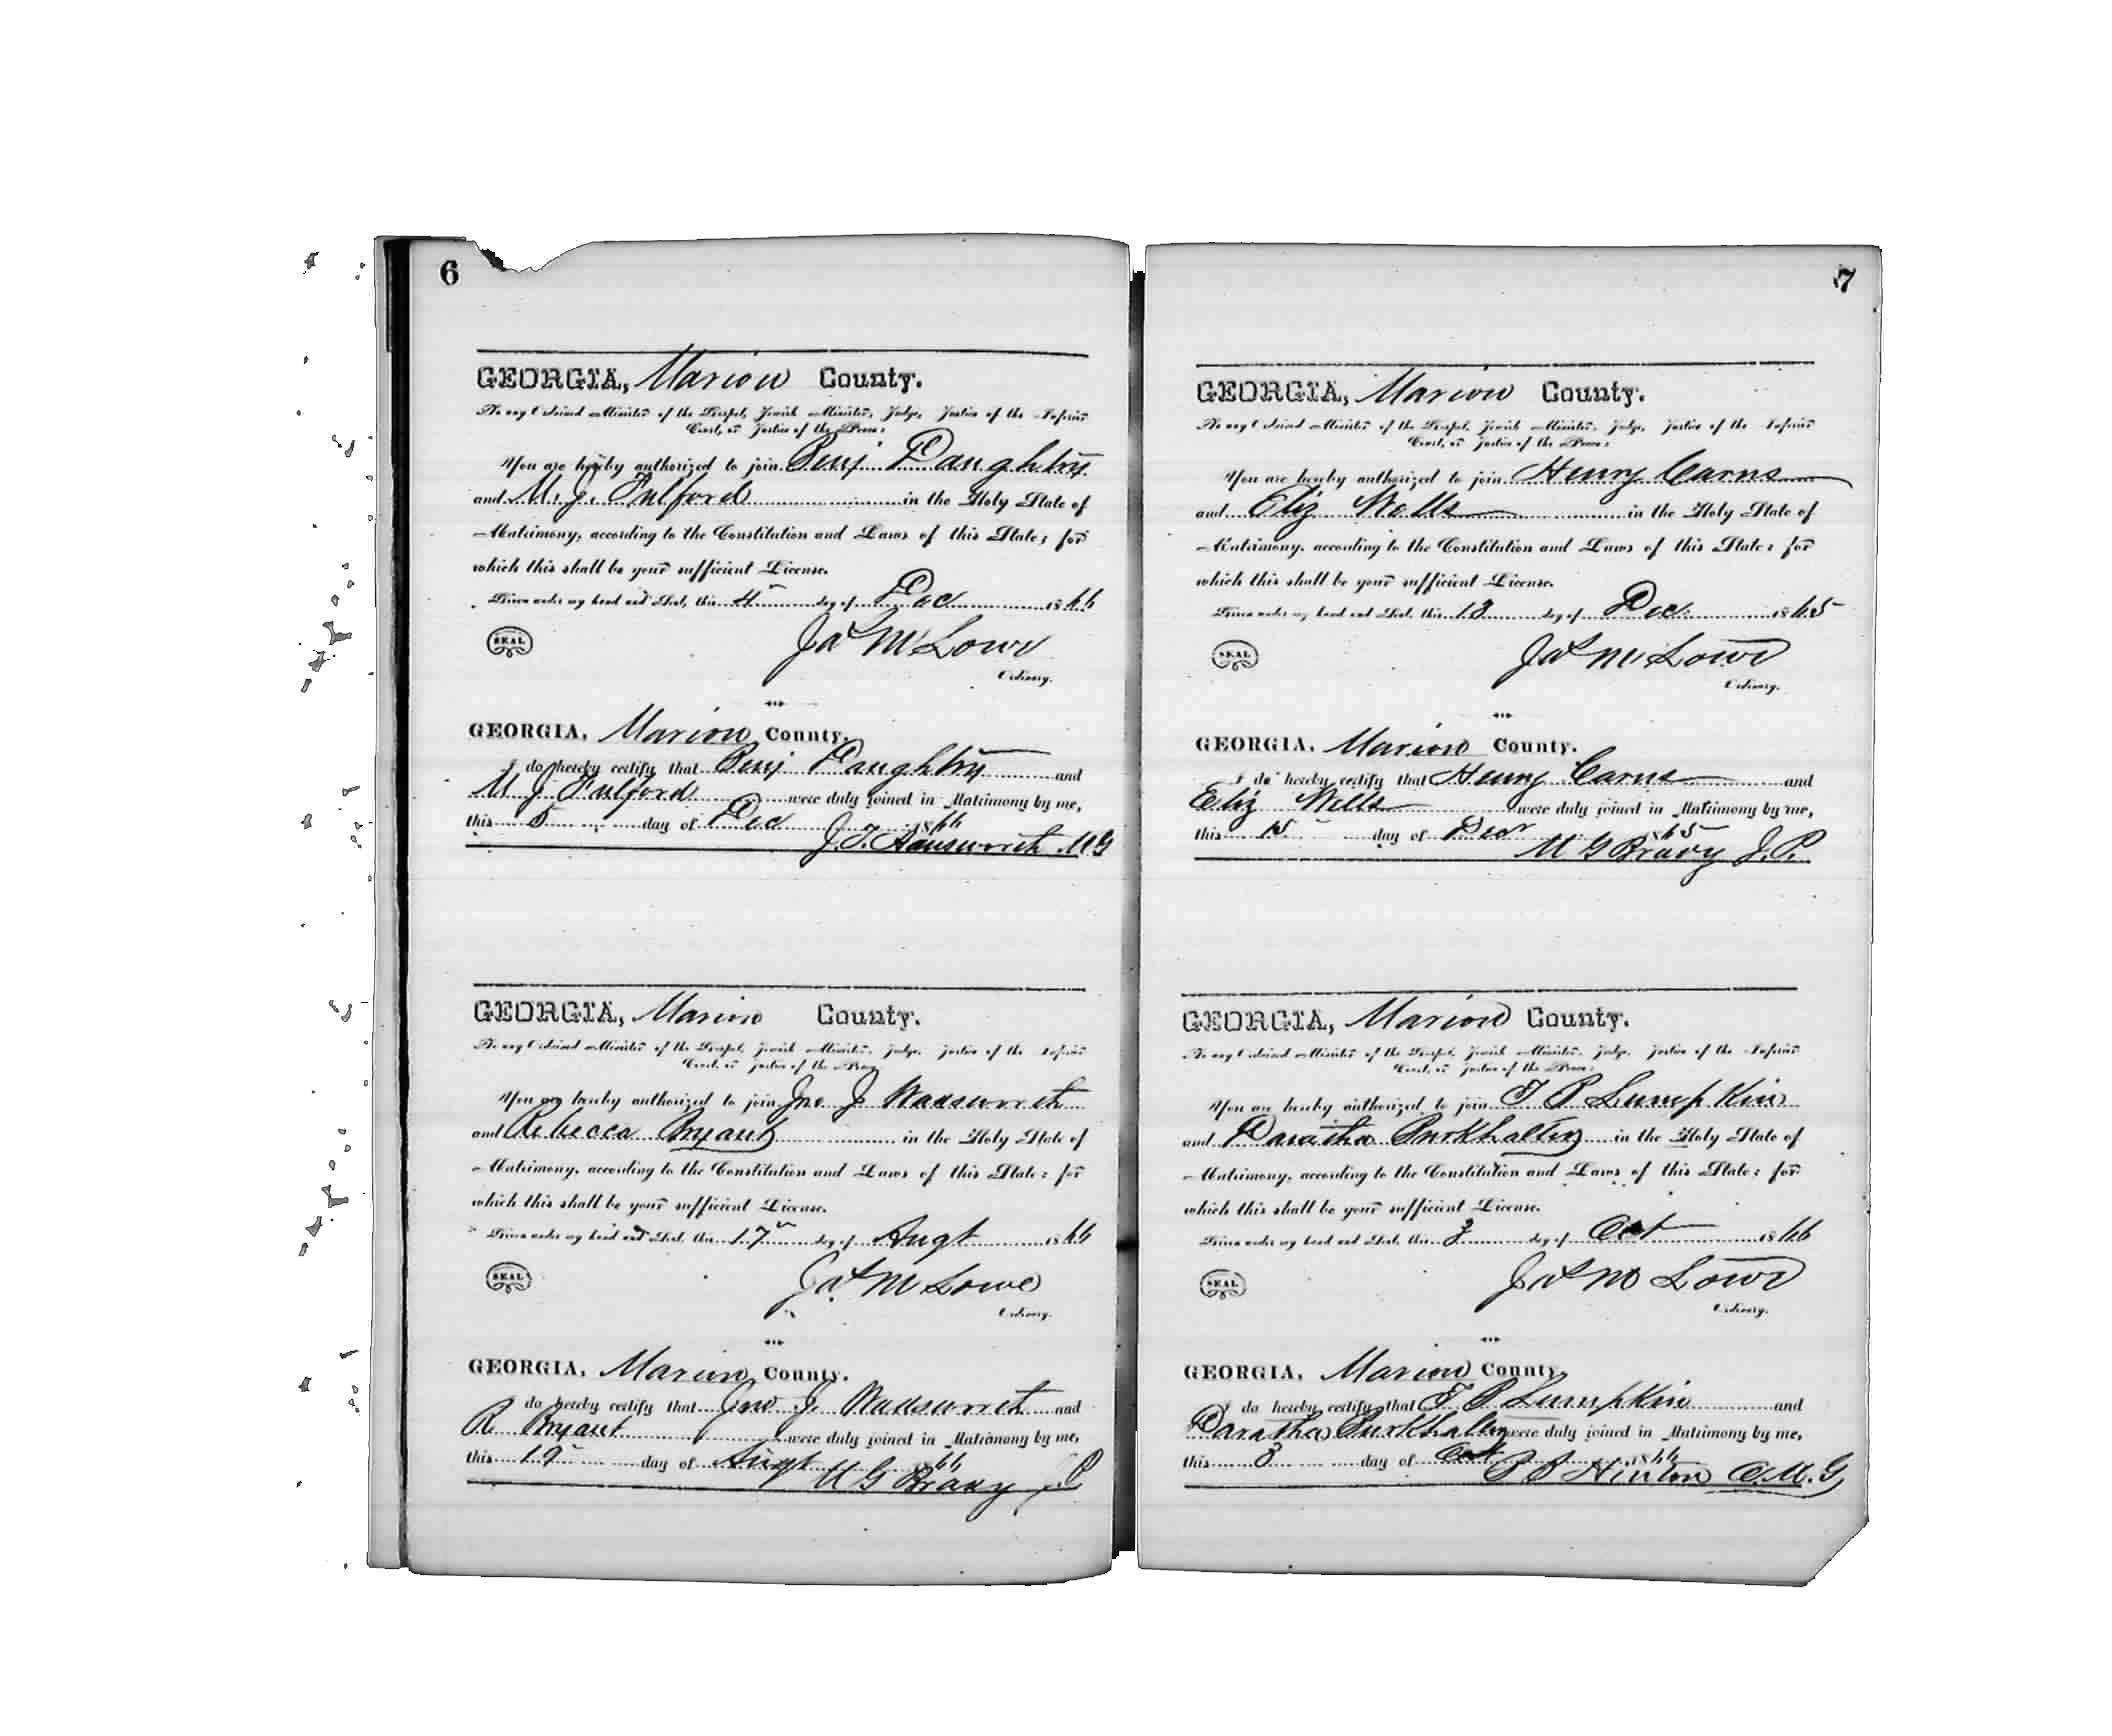 6
GEORGIA, Marion County.
To any Ordained Minister of the Gospel, Jewish Minister, Judge, Justice of the Inferior
Court, or Justice of the Peace:
You are hereby authorized to join Benj Daughtry
and M. J. Fulford in the Holy State of
Matrimony, according to the Constitution and Laws of this State; for
which this shall be your sufficient License.
Given under my hand and Seal, this 4 day of Dec 1866
SEAL
Jas M Lowe
Ordinary.
GEORGIA, Marion County.
I do hereby certify that Benj Daughtry and
M J Fulford were duly joined in Matrimony by me,
this 5 day of Dec 1866
J. T. Ainsworth MG
GEORGIA, Marion County.
To any Ordained Minister of the Gospel, Jewish Minister, Judge, Justice of the Inferior
Court, or Justice of the Peace:
You are hereby authorized to join Jno J Wadsworth
and Rebecca Bryant in the Holy State of
Matrimony, according to the Constitution and Laws of this State: for
which this shall be your sufficient License.
Given under my hand and Seal, this 17 day of Augt 1866
SEAL
Jas. M Lowe
Ordinary.
GEORGIA, Marion County.
I do hereby certify that Jno J. Wadsworth and
R Bryant were duly joined in Matrimony by me,
this 19 day of Augt 1866
M G Brady JP
7
GEORGIA, Marion County.
To any Ordained Minister of the Gospel, Jewish Minister, Judge, Justice of the Inferior
Court, or Justice of the Peace:
You are hereby authorized to join Henry Carns
and Eliz Wells in the Holy State of
Matrimony, according to the Constitution and Laws of this State: for
which this shall be your sufficient License.
Given under my hand and Seal, this 13 day of Dec 1865
SEAL
Jas M Lowe
Ordinary.
GEORGIA, Marion County.
I do hereby certify that Henry Carns and
Eliz Wells were duly joined in Matrimony by me,
this 15 day of Decr 1865
M G Brady J. P.
GEORGIA, Marion County.
To any Ordained Minister of the Gospel, Jewish Minister, Judge, Justice of the Inferior
Court, or Justice of the Peace:
You are hereby authorized to join T P Lumpkin
and Daratha Burkhalter in the Holy State of
Matrimony, according to the Constitution and Laws of this State; for
which this shall be your sufficient License.
Given under my hand and Seal, this 3 day of Oct 1866
SEAL
Jas M Lowe
Ordinary.
GEORGIA, Marion County.
I do hereby certify that T P Lumpkin and
Daratha Burkhalter were duly joined in Matrimony by me,
this 3 day of Oct 1866
Hinton O. M. G